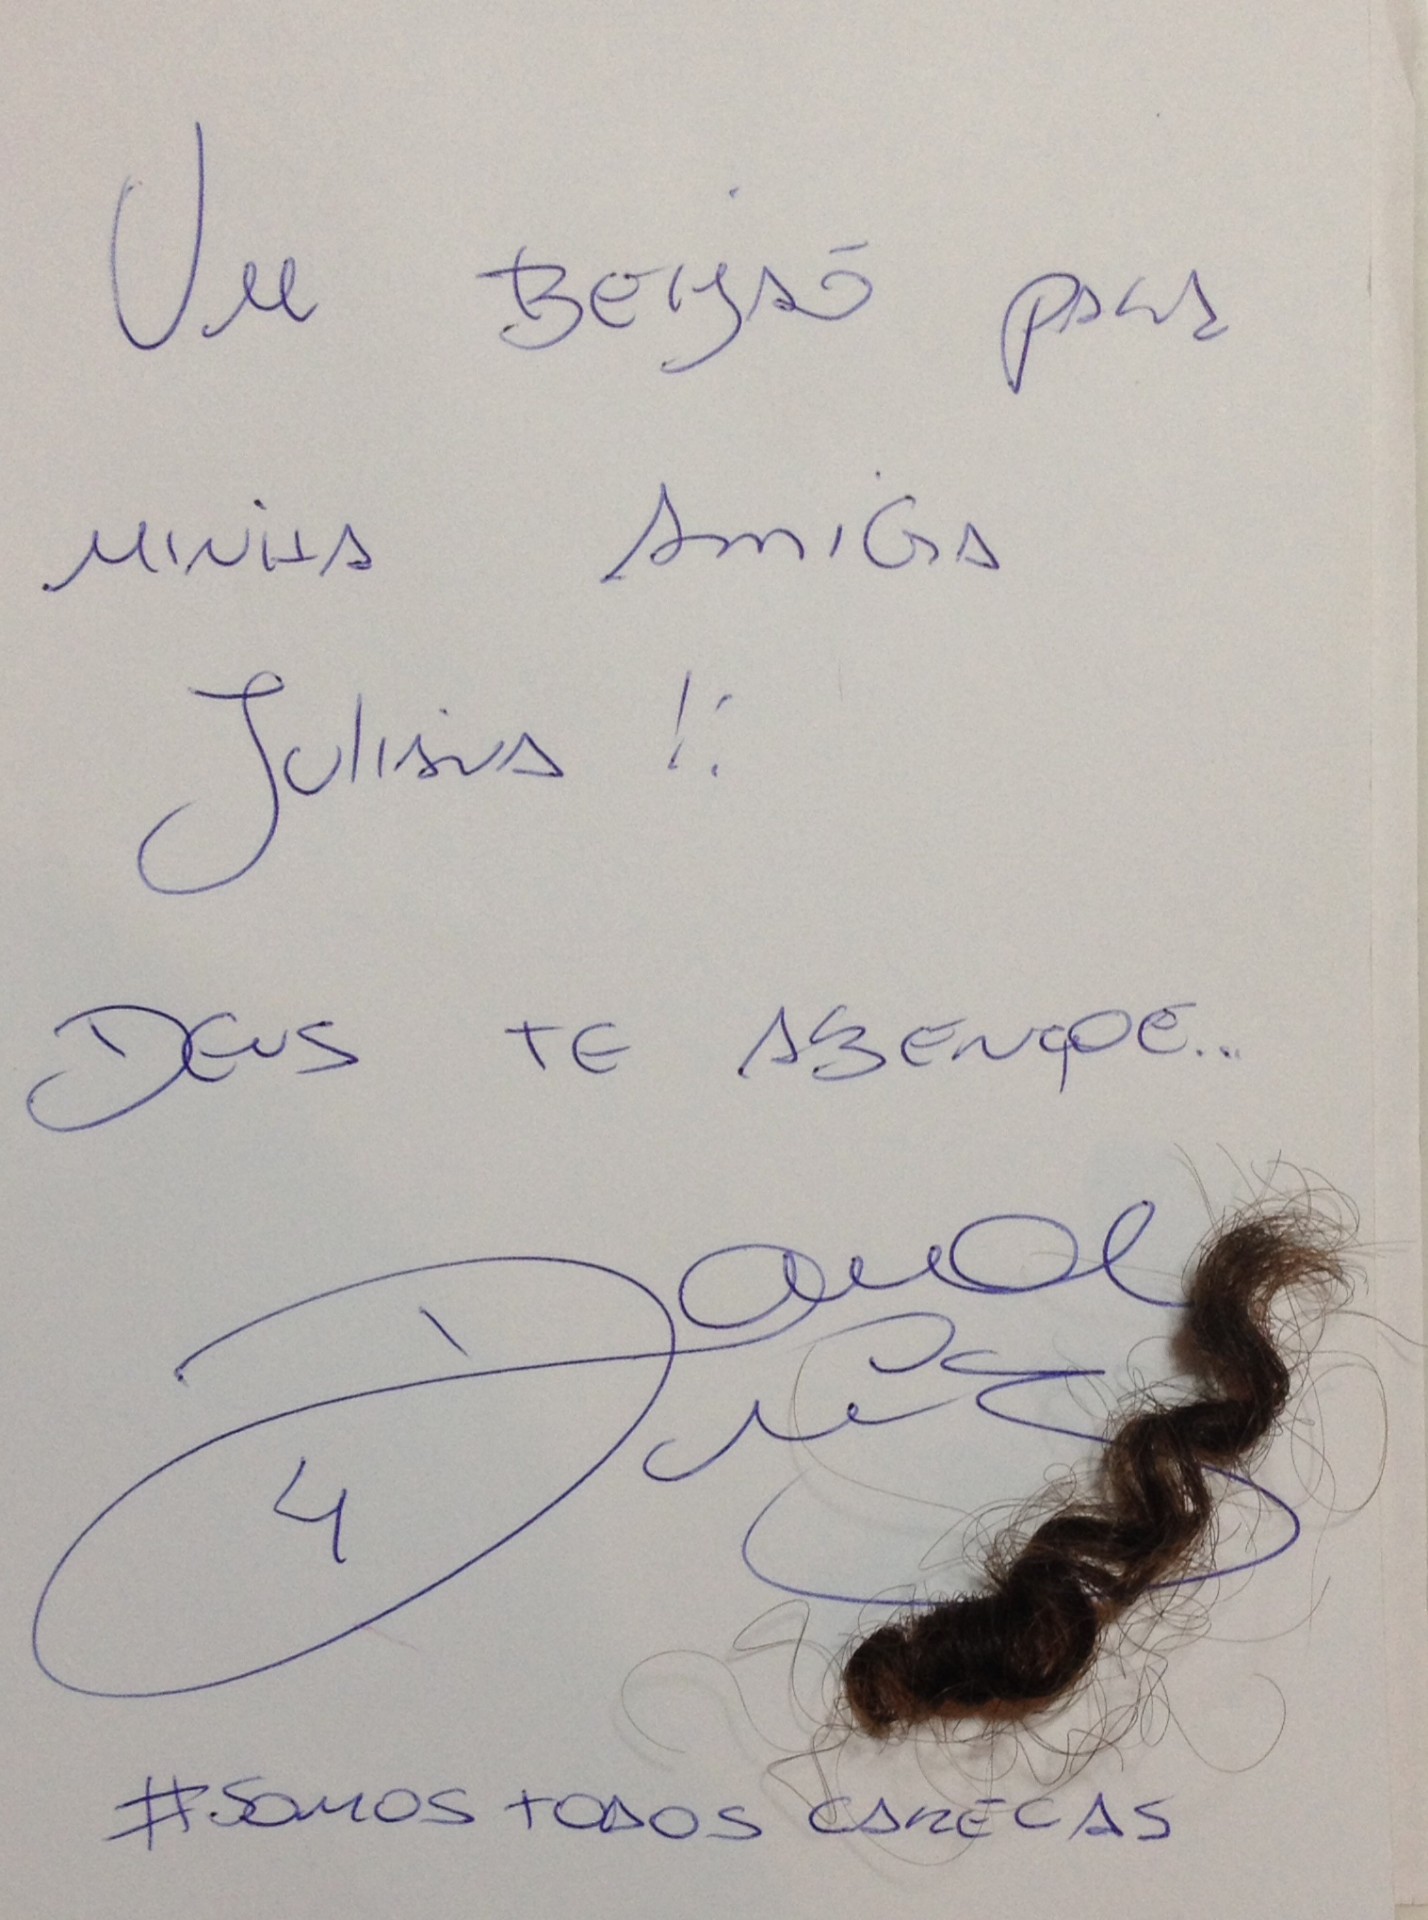 Um BEIJÃO para
minha Amiga
Juliana !!
DEUS TE ABENÇOE...
David
Luiz
4
#SOMOS TODOS CARECAS